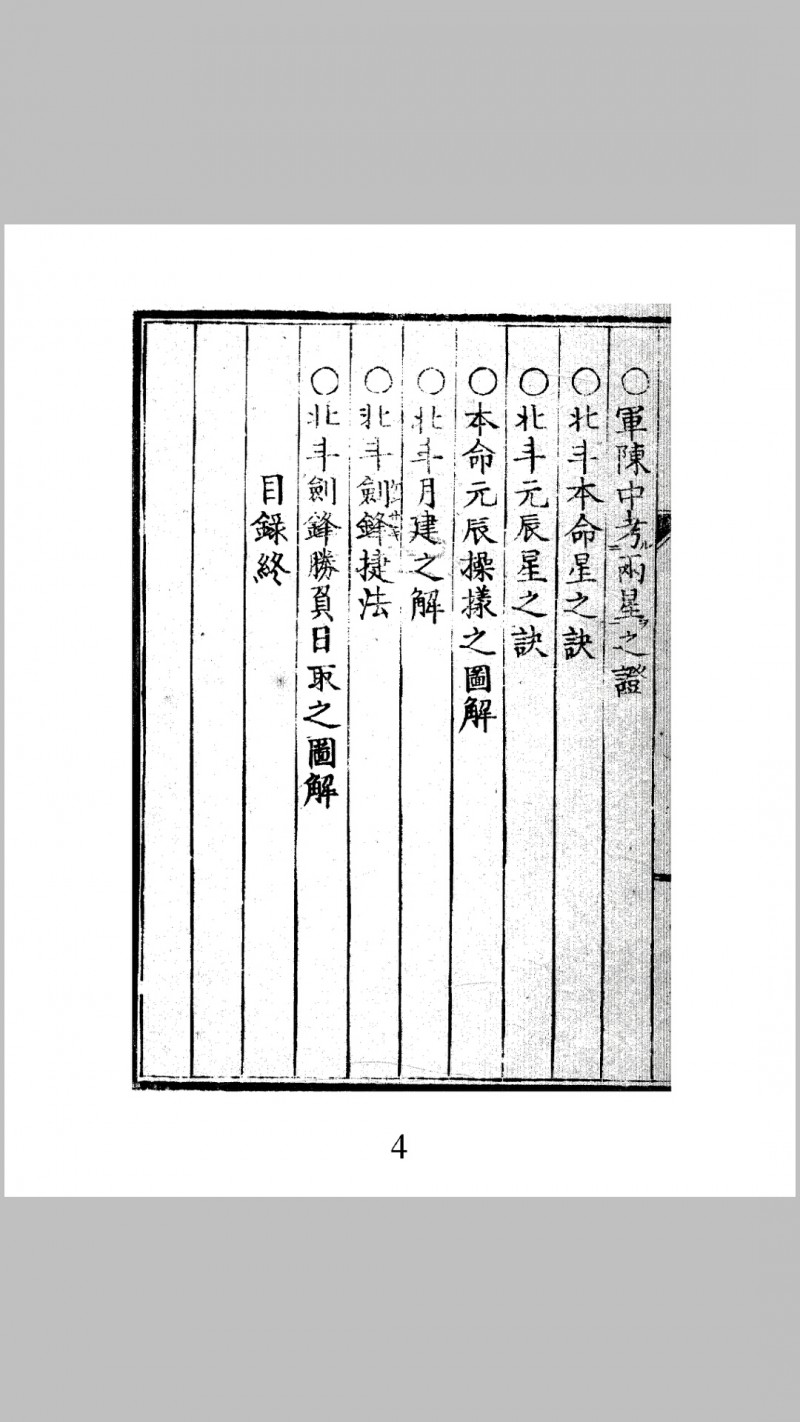 ○軍陳中考兩星之證
○北斗本命星之訣
○北斗元辰星之訣
○本命元辰操㨾之圖解
○北斗月建之解
○北斗劍鋒捷法
○北斗劍鋒勝負日取之圖解
目錄終
4